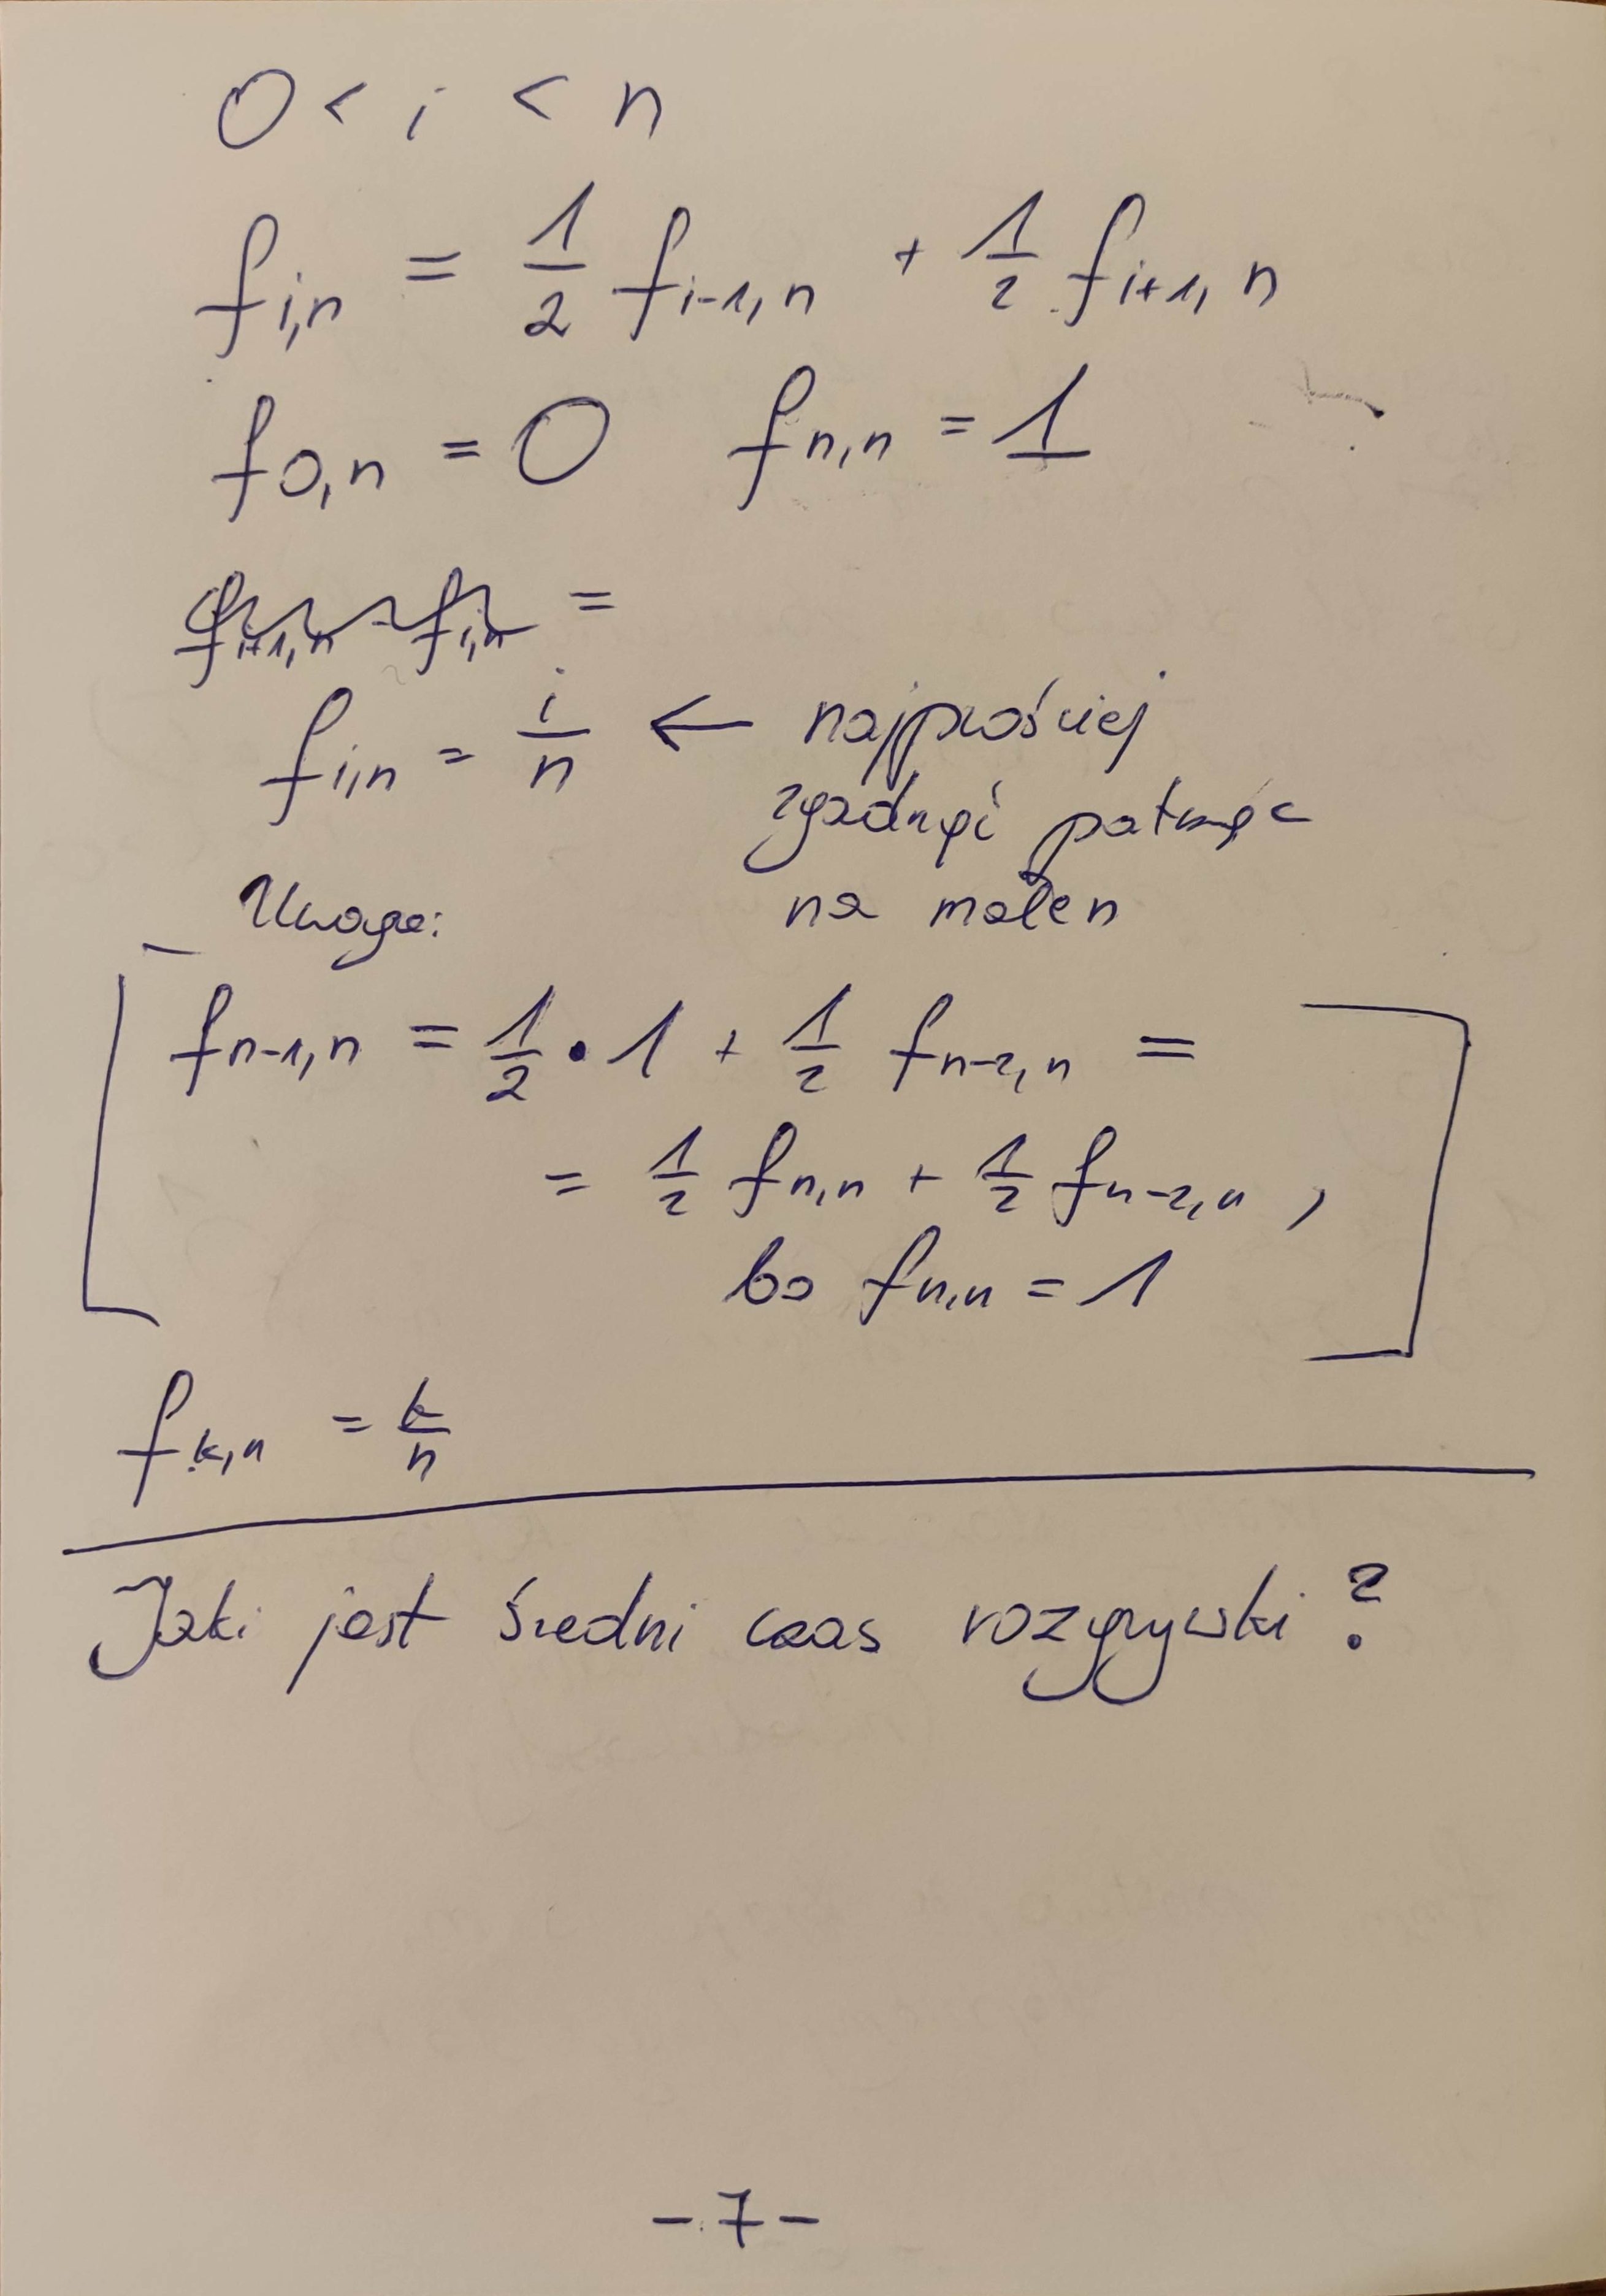 0 < i < n
f_{i,n} = \frac{1}{2} f_{i-1,n} + \frac{1}{2} f_{i+1,n}
f_{0,n} = 0 f_{n,n} = 1
f_{i+1,n} - f_{i,n} =
f_{i,n} = \frac{i}{n} ← najprościej
zgadnąć patrząc
na małe n
Uwaga:
f_{n-1,n} = \frac{1}{2} • 1 + \frac{1}{2} f_{n-2,n} =
= \frac{1}{2} f_{n,n} + \frac{1}{2} f_{n-2,n} ,
bo f_{n,n} = 1
f_{k,n} = \frac{k}{n}
Jaki jest średni czas rozgrywki?
- 7 -